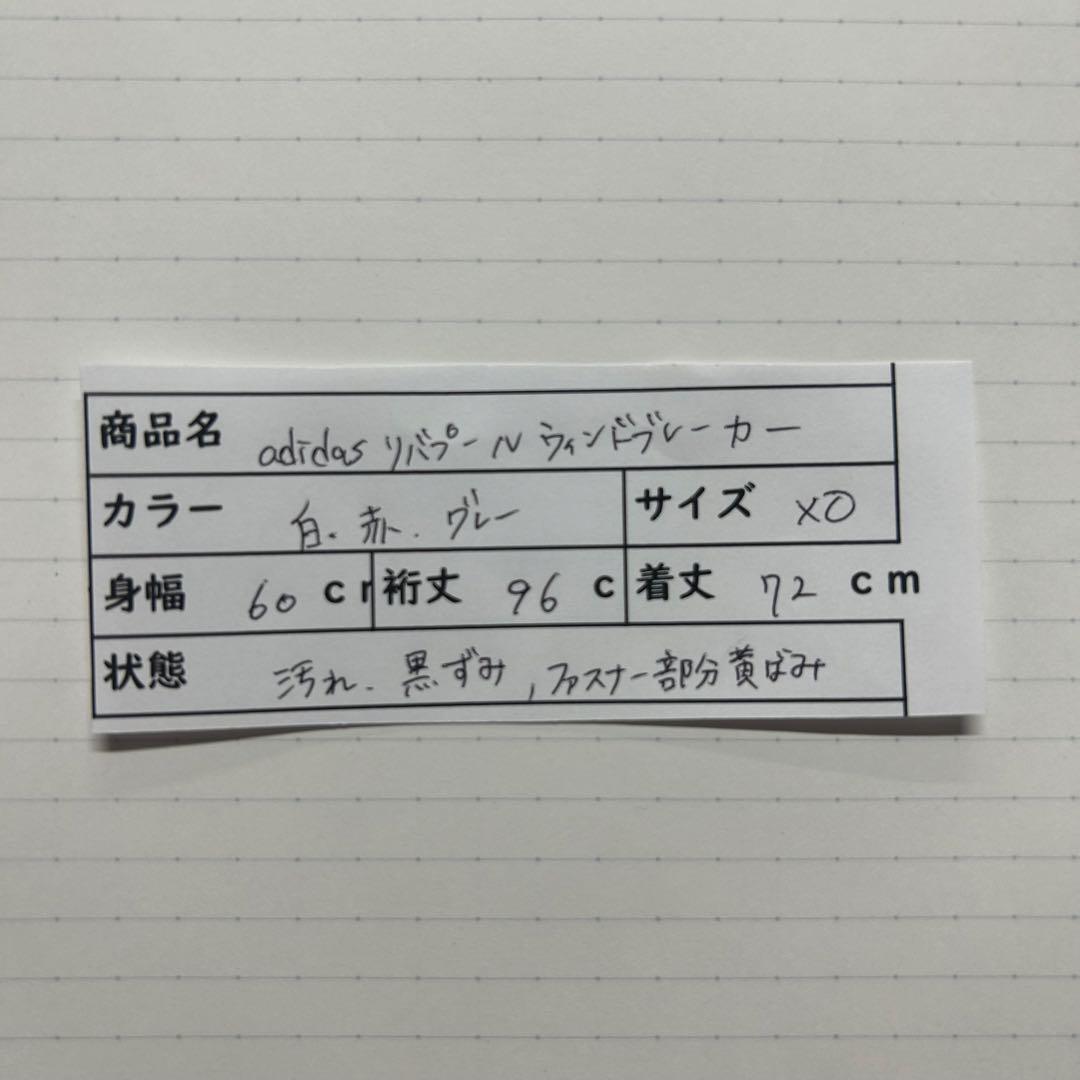 商品名 adidas リバプール ウィンドブレーカー
カラー 白. 赤. グレー サイズ XO
身幅 60 cm 裄丈 96 c 着丈 72 cm
状態 汚れ. 黒ずみ, ファスナー部分黄ばみ